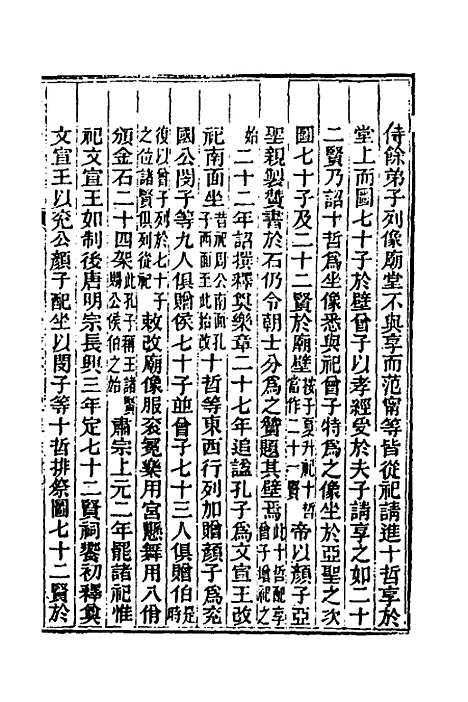 侍餘弟子列像廟堂不與享而范甯等皆從祀請進十哲享於
堂上而圖七十子於壁曾子以孝經受於夫子請享之如二十
二賢乃詔十哲爲坐像悉與祀曾子特爲之像坐於亞聖之次
圖七十子及二十二賢於廟壁按子夏升祀十哲當作二十一賢帝以顏子亞
聖親製贊書於石仍令朝士分爲之贊題其壁焉此十哲配享曾子增祀之始
二十二年詔撰釋奠樂章二十七年追諡孔子爲文宣王改
祀南面坐昔祀周公南面孔子西面王此始改十哲等東西行列加贈顏子爲兖
國公閔子等九人俱贈侯七十子並曾子七十三人俱贈伯時是
復以曾子列於七十子之位諸賢俱列從祀敕改廟像服衮冕樂用宮懸舞用八佾
頒金石二十四架此孔子稱王諸賢賜公侯伯之始肅宗上元二年罷諸祀惟
祀文宣王如制後唐明宗長興三年定七十二賢祠饗初釋奠
文宣王以兖公顏子配坐以閔子等十哲排祭圖七十二賢於